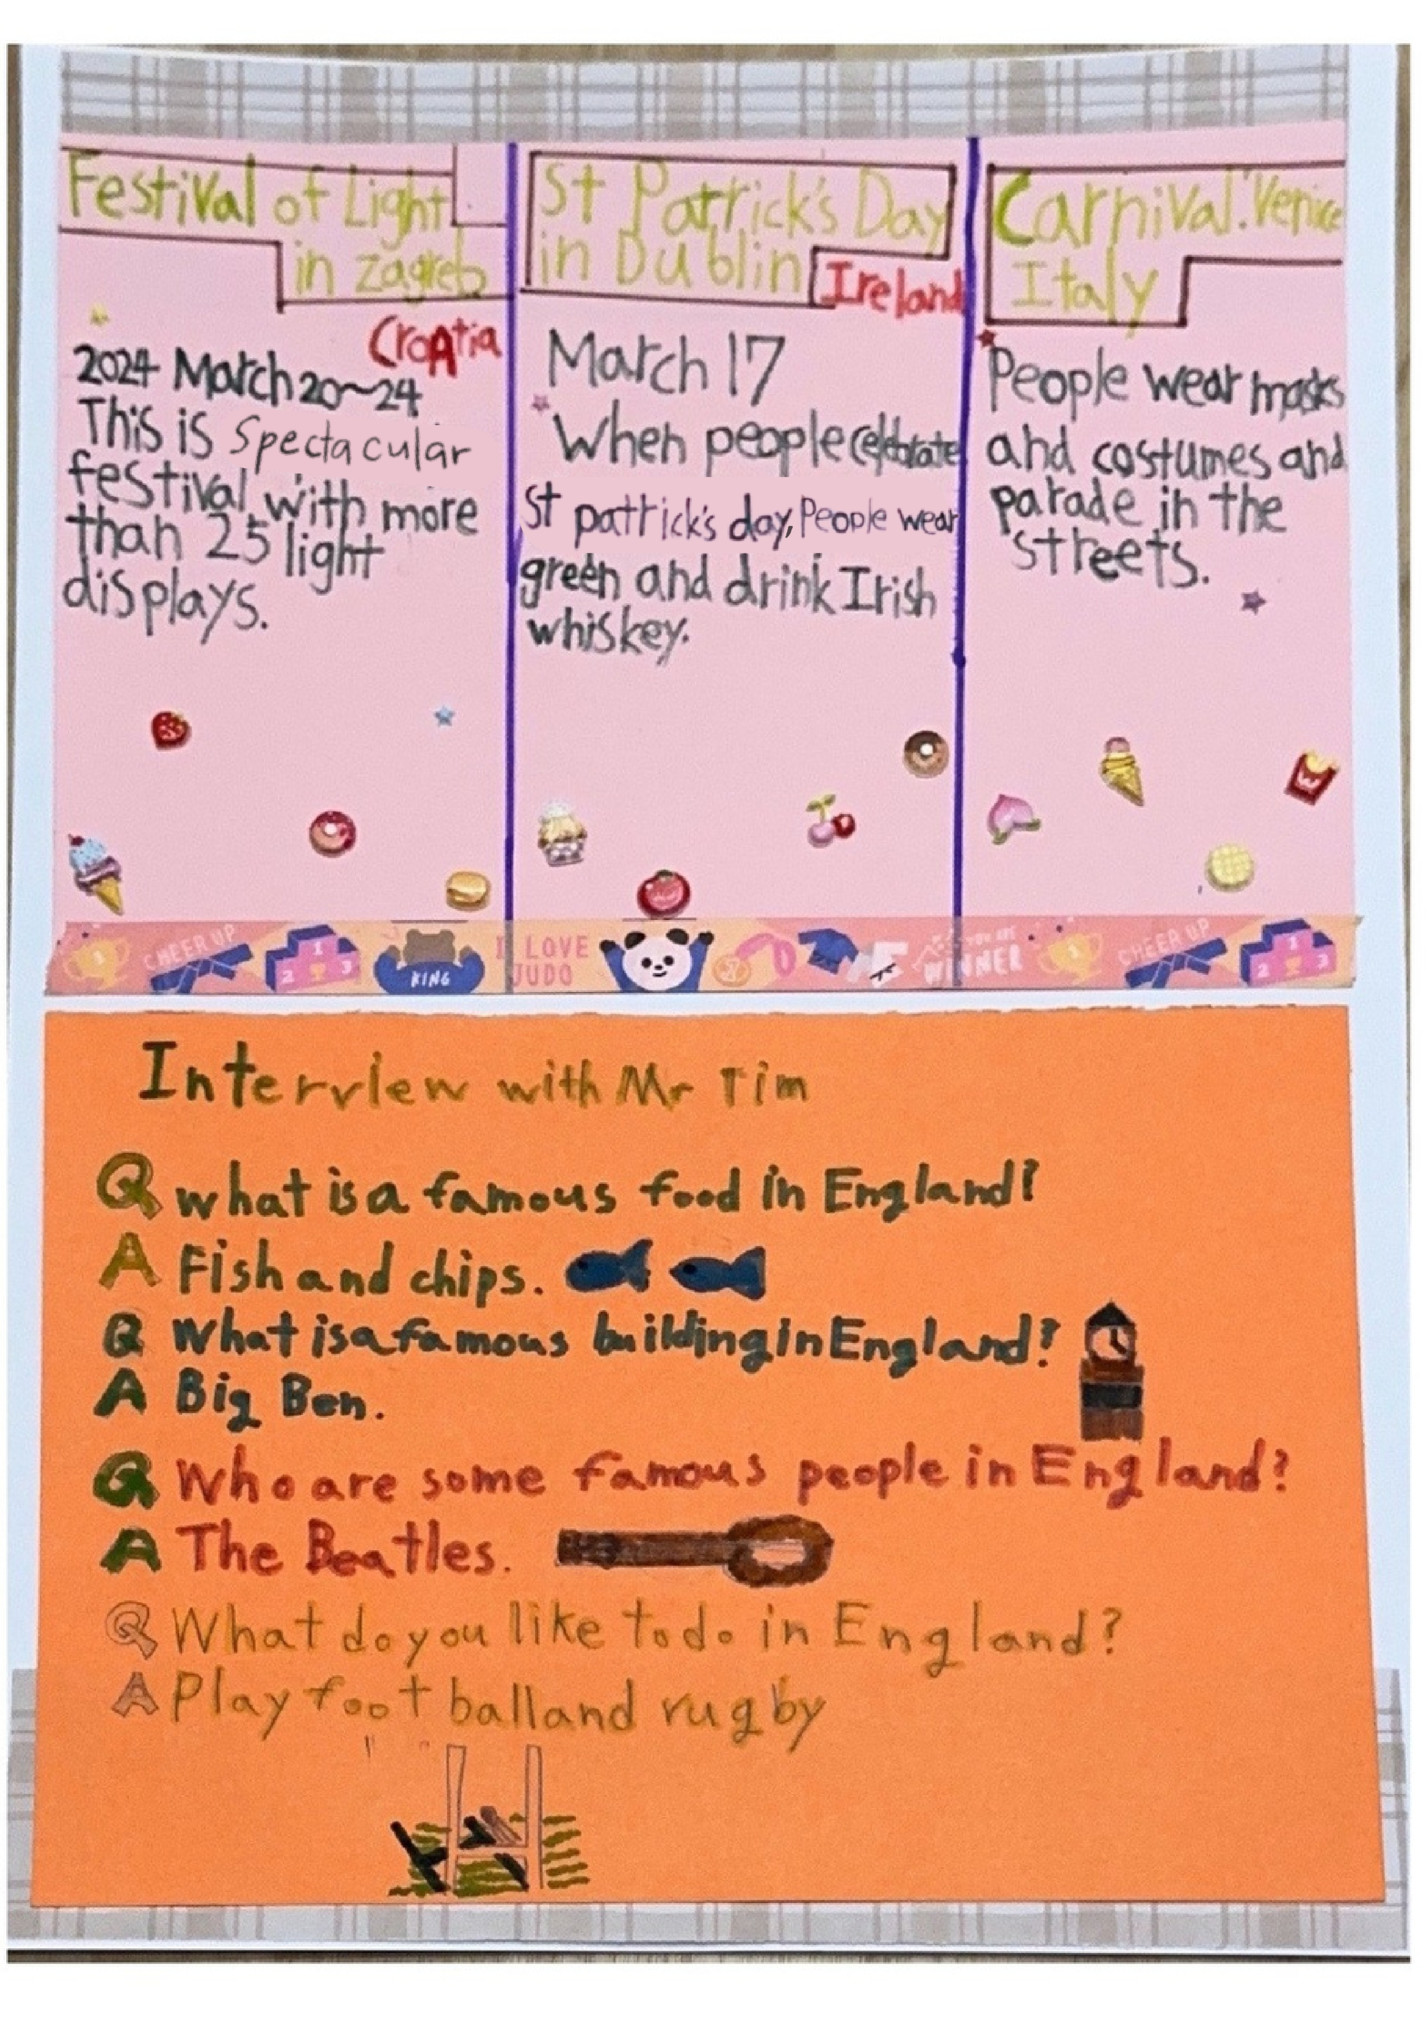 Festival of Light
in Zagreb
Croatia
2024 March 20~24
This is Spectacular
festival with more
than 25 light
displays.
St Patrick's Day
in Dublin
Ireland
March 17
When people celebrate
St patrick's day, People wear
green and drink Irish
whiskey.
Carnival. Venice
Italy
People wear masks
and costumes and
parade in the
streets.
CHEER UP
1
2 3
KING
I LOVE
JUDO
YOU ARE
WINNER
1
CHEER UP
1
2 3
Interview with Mr Tim
Q what is a famous food in England?
A Fish and chips.
Q What is a famous building in England?
A Big Ben.
Q Who are some famous people in England?
A The Beatles.
Q What do you like to do in England?
A Play foot ball and rugby